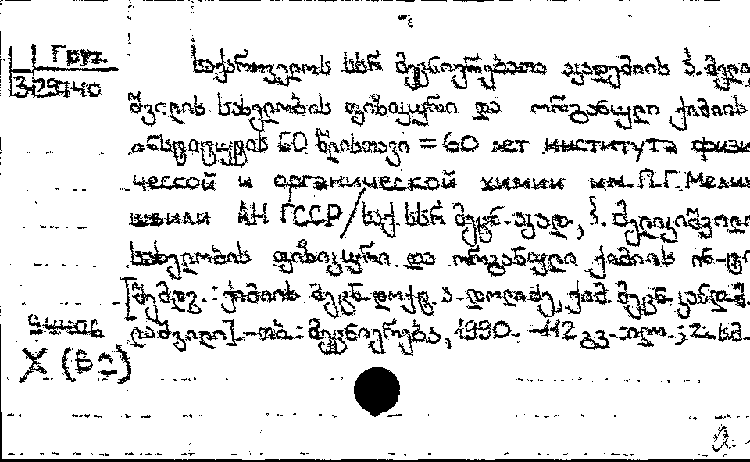 Груз.
3-29740
საქართველოს სსრ მეცნიერებათა აკადემიის პ. მელი
შვილის სახელობის ფიზიკური და ორგანული ქიმიის
ინსტიტუტის 60 წლისთავი = 60 лет института физи
ческой и органической химии им. П.Г. Мели
швили АН ГССР/საქ. სსრ მეცნ. აკად., პ. მელიქიშვილი
სახელობის ფიზიკური და ორგანული ქიმიის ინ-ტი
[შემდგ.: ქიმიის მეცნ. დოქტ. ა. დოლიძე, ქიმ. მეცნ. კანდ.
ღამვილი]. - თბ.: მეცნიერება, 1990. - 112 გვ. ილ.; 2 სმ.
X (Вა)